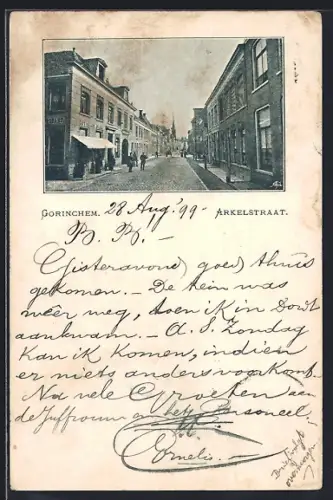 GORINCHEM. 28 Aug. '99- ARKELSTRAAT.
B. B. -
Gisteravond goed thuis
gekomen. - De tram was
weer weg, toen ik in Dordt
aankwam. - A. S. Zondag
kan ik komen, indien
er niets anders voorkomt.
Na vele Groeten aan
de Juffrouw en het Personeel,
Cornelis.
Brief volgt
overmorgen.